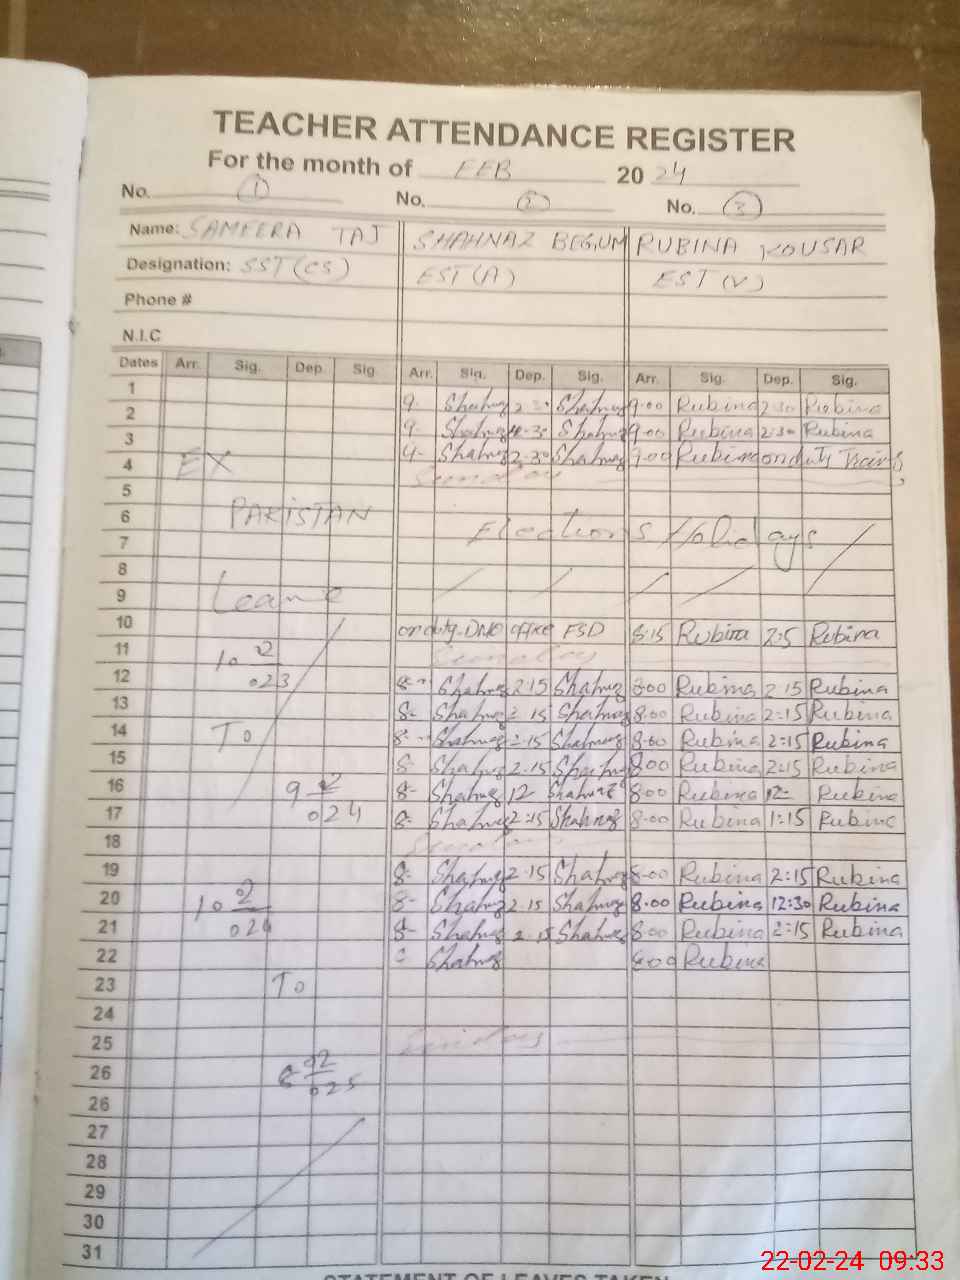 TEACHER ATTENDANCE REGISTER
For the month of FEB 2024
No. 1 No. 2 No. 3
Name: SAMEERA TAJ SHAHNAZ BEGUM RUBINA KOUSAR
Designation: SST (CS) EST (A) EST (V)
Phone #
N.I.C
Dates Arr. Sig. Dep. Sig Arr. Sig. Dep. Sig. Arr. Sig. Dep. Sig.
1 9- Shahnaz 2-30 Shahnaz 9-00 Rubina 2-30 Rubina
2 9- Shahnaz 2-30 Shahnaz 9-00 Rubina 2-30 Rubina
3 Shahnaz 2-30 Shahnaz 9-00 Rubina on duty
4 EX Sunday
5
6 PAKISTAN Elections Holidays
7
8
9 Leave
10 on duty DMO office FSD 8:15 Rubina 2:5 Rubina
11 10 2 Sunday
12 023 8- Shahnaz 2-15 Shahnaz 8:00 Rubina 2-15 Rubina
13 8- Shahnaz 2-15 Shahnaz 8-00 Rubina 2:15 Rubina
14 To 8- Shahnaz 2-15 Shahnaz 8-00 Rubina 2:15 Rubina
15 8 Shahnaz 2-15 Shahnaz 8:00 Rubina 2:15 Rubina
16 9 2 8- Shahnaz 12 Shahnaz 8:00 Rubina 12- Rubina
17 024 8- Shahnaz 2:15 Shahnaz 8-00 Rubina 1:15 Rubina
18 Sunday
19 8- Shahnaz 2-15 Shahnaz 8-00 Rubina 2:15 Rubina
20 10 2 8- Shahnaz 2-15 Shahnaz 8:00 Rubina 12:30 Rubina
21 024 8- Shahnaz 2-15 Shahnaz 8:00 Rubina 2:15 Rubina
22 Shahnaz 8:00 Rubina
23 To
24
25 Sunday
26 8 02
26 025
27
28
29
30
31
STATEMENT OF LEAVES TAKEN
22-02-24 09:33